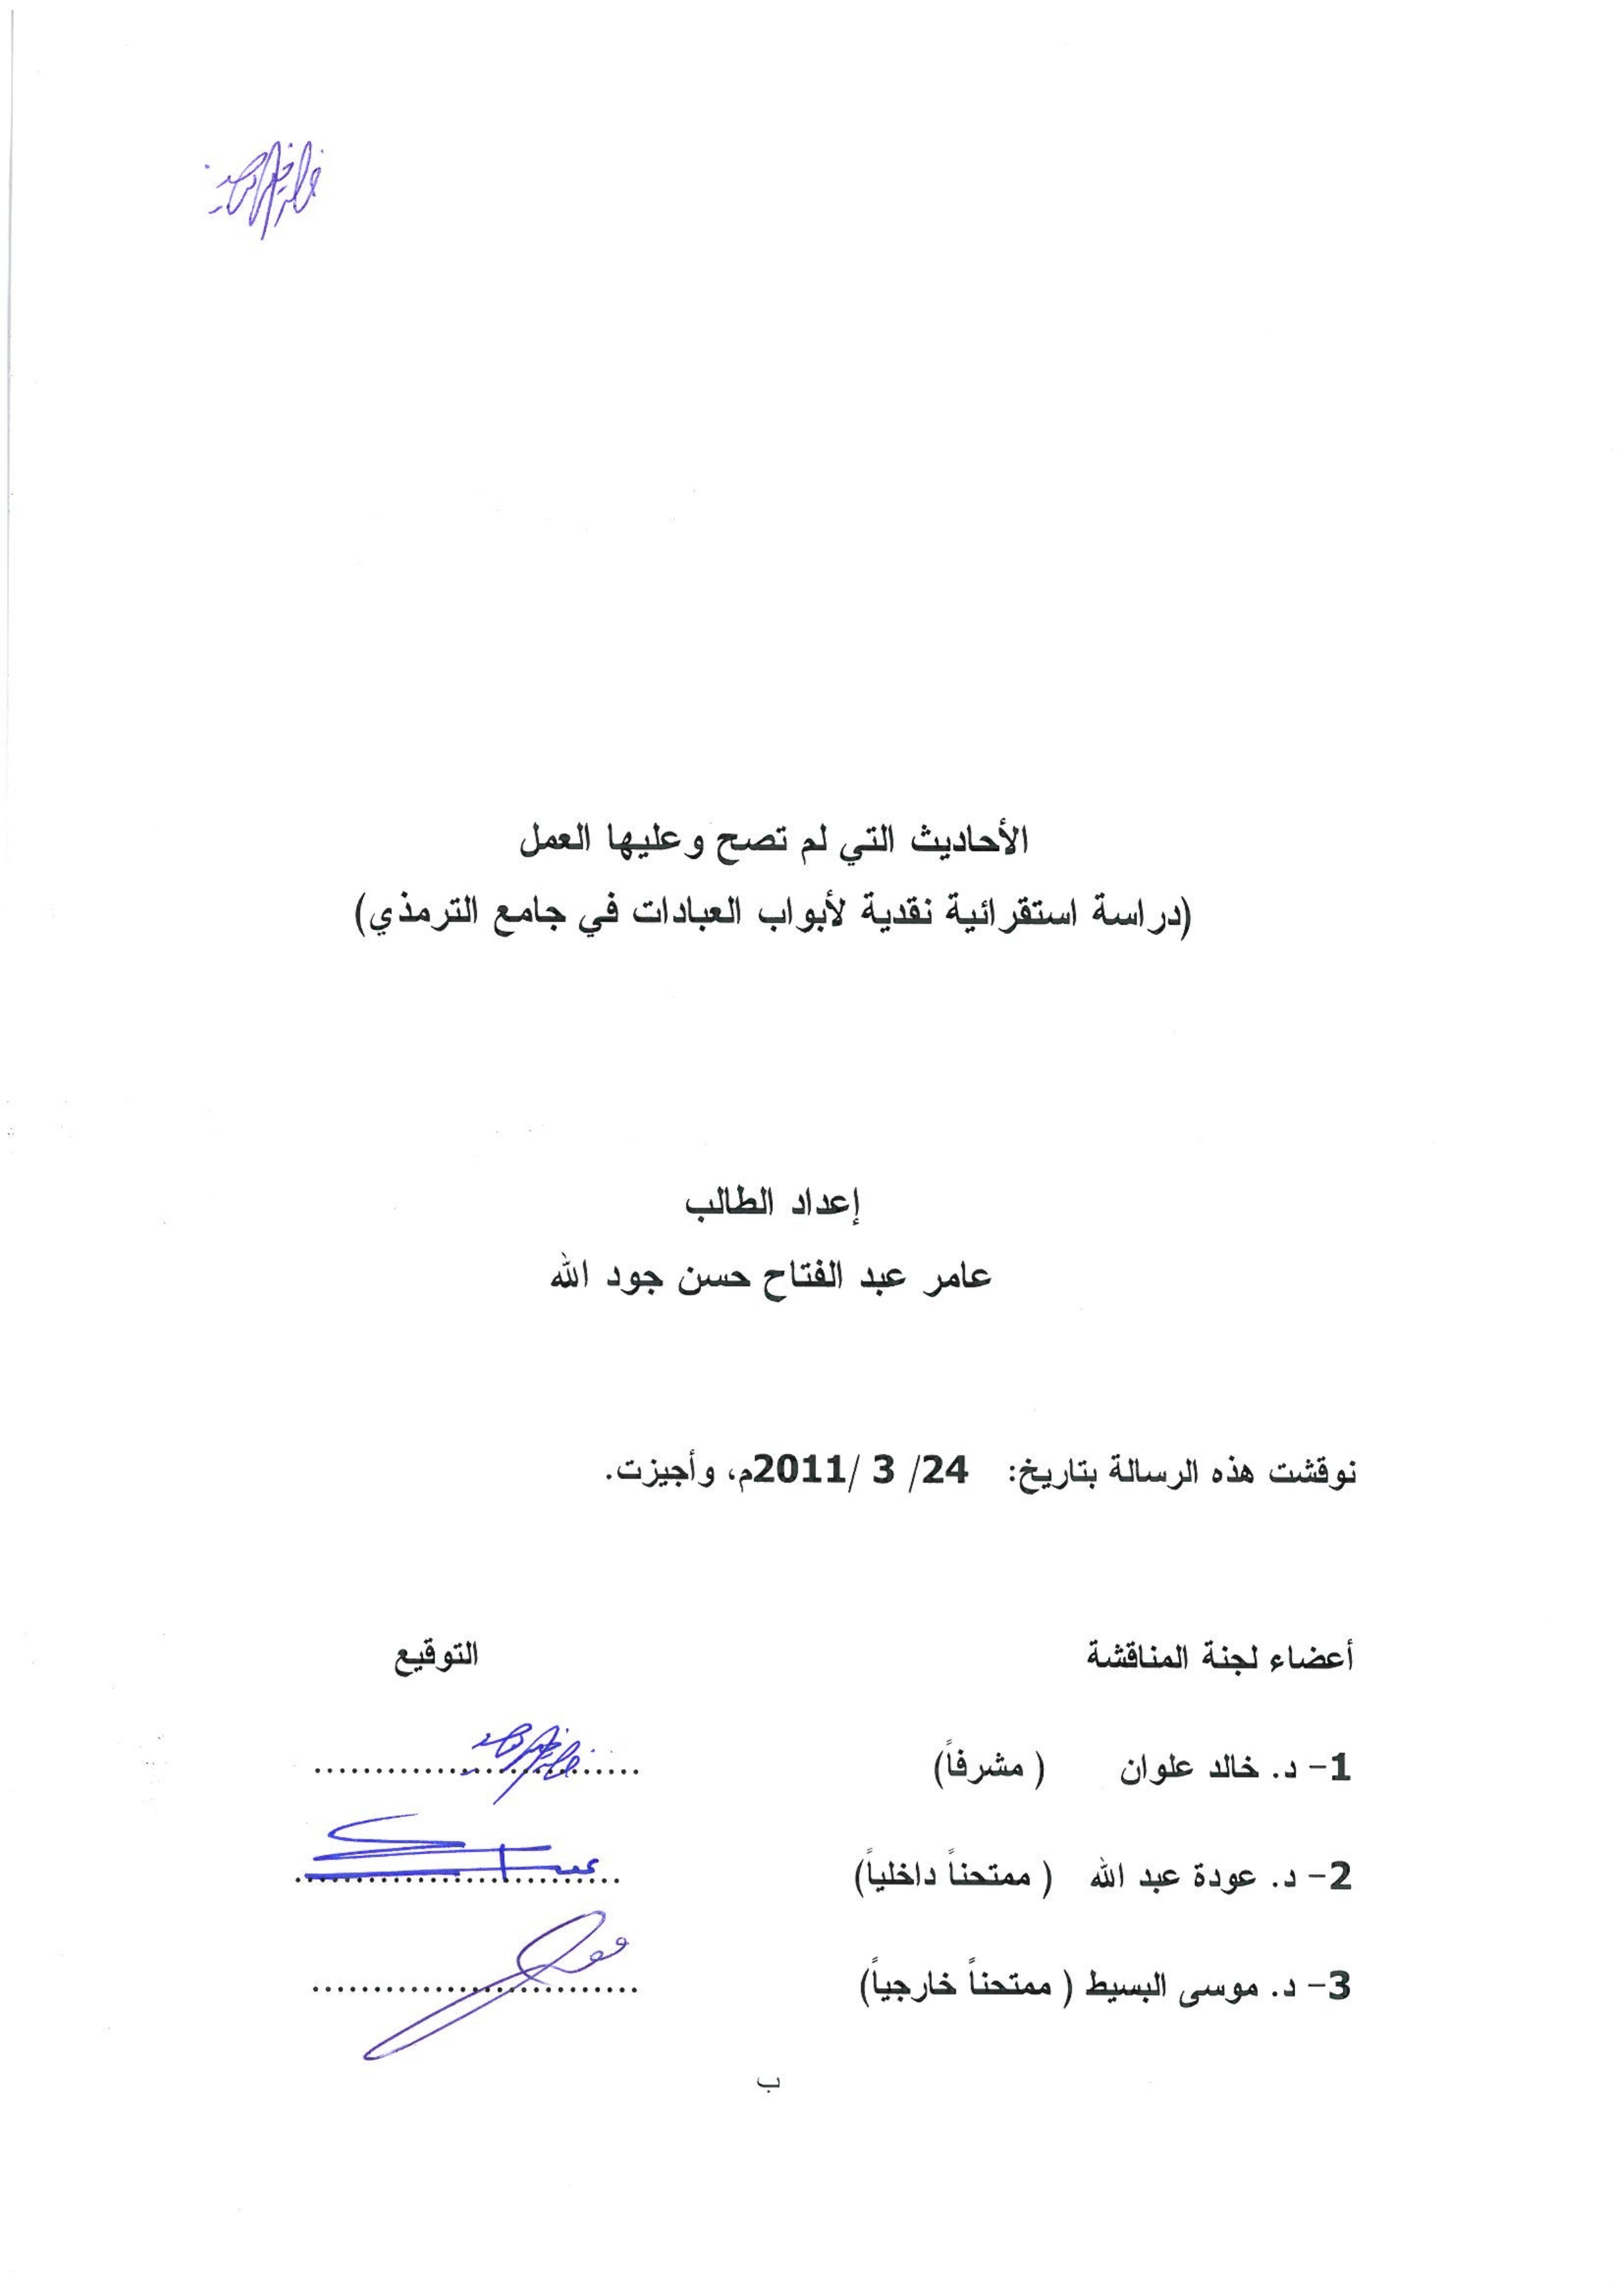 الأحاديث التي لم تصح وعليها العمل
(دراسة استقرائية نقدية لأبواب العبادات في جامع الترمذي)
إعداد الطالب
عامر عبد الفتاح حسن جود الله
نوقشت هذه الرسالة بتاريخ: 24/ 3 /2011م، وأجيزت.
أعضاء لجنة المناقشة التوقيع
1- د. خالد علوان ( مشرفاً) ............................
2- د. عودة عبد الله ( ممتحناً داخلياً) ............................
3- د. موسى البسيط ( ممتحناً خارجياً) ............................
ب